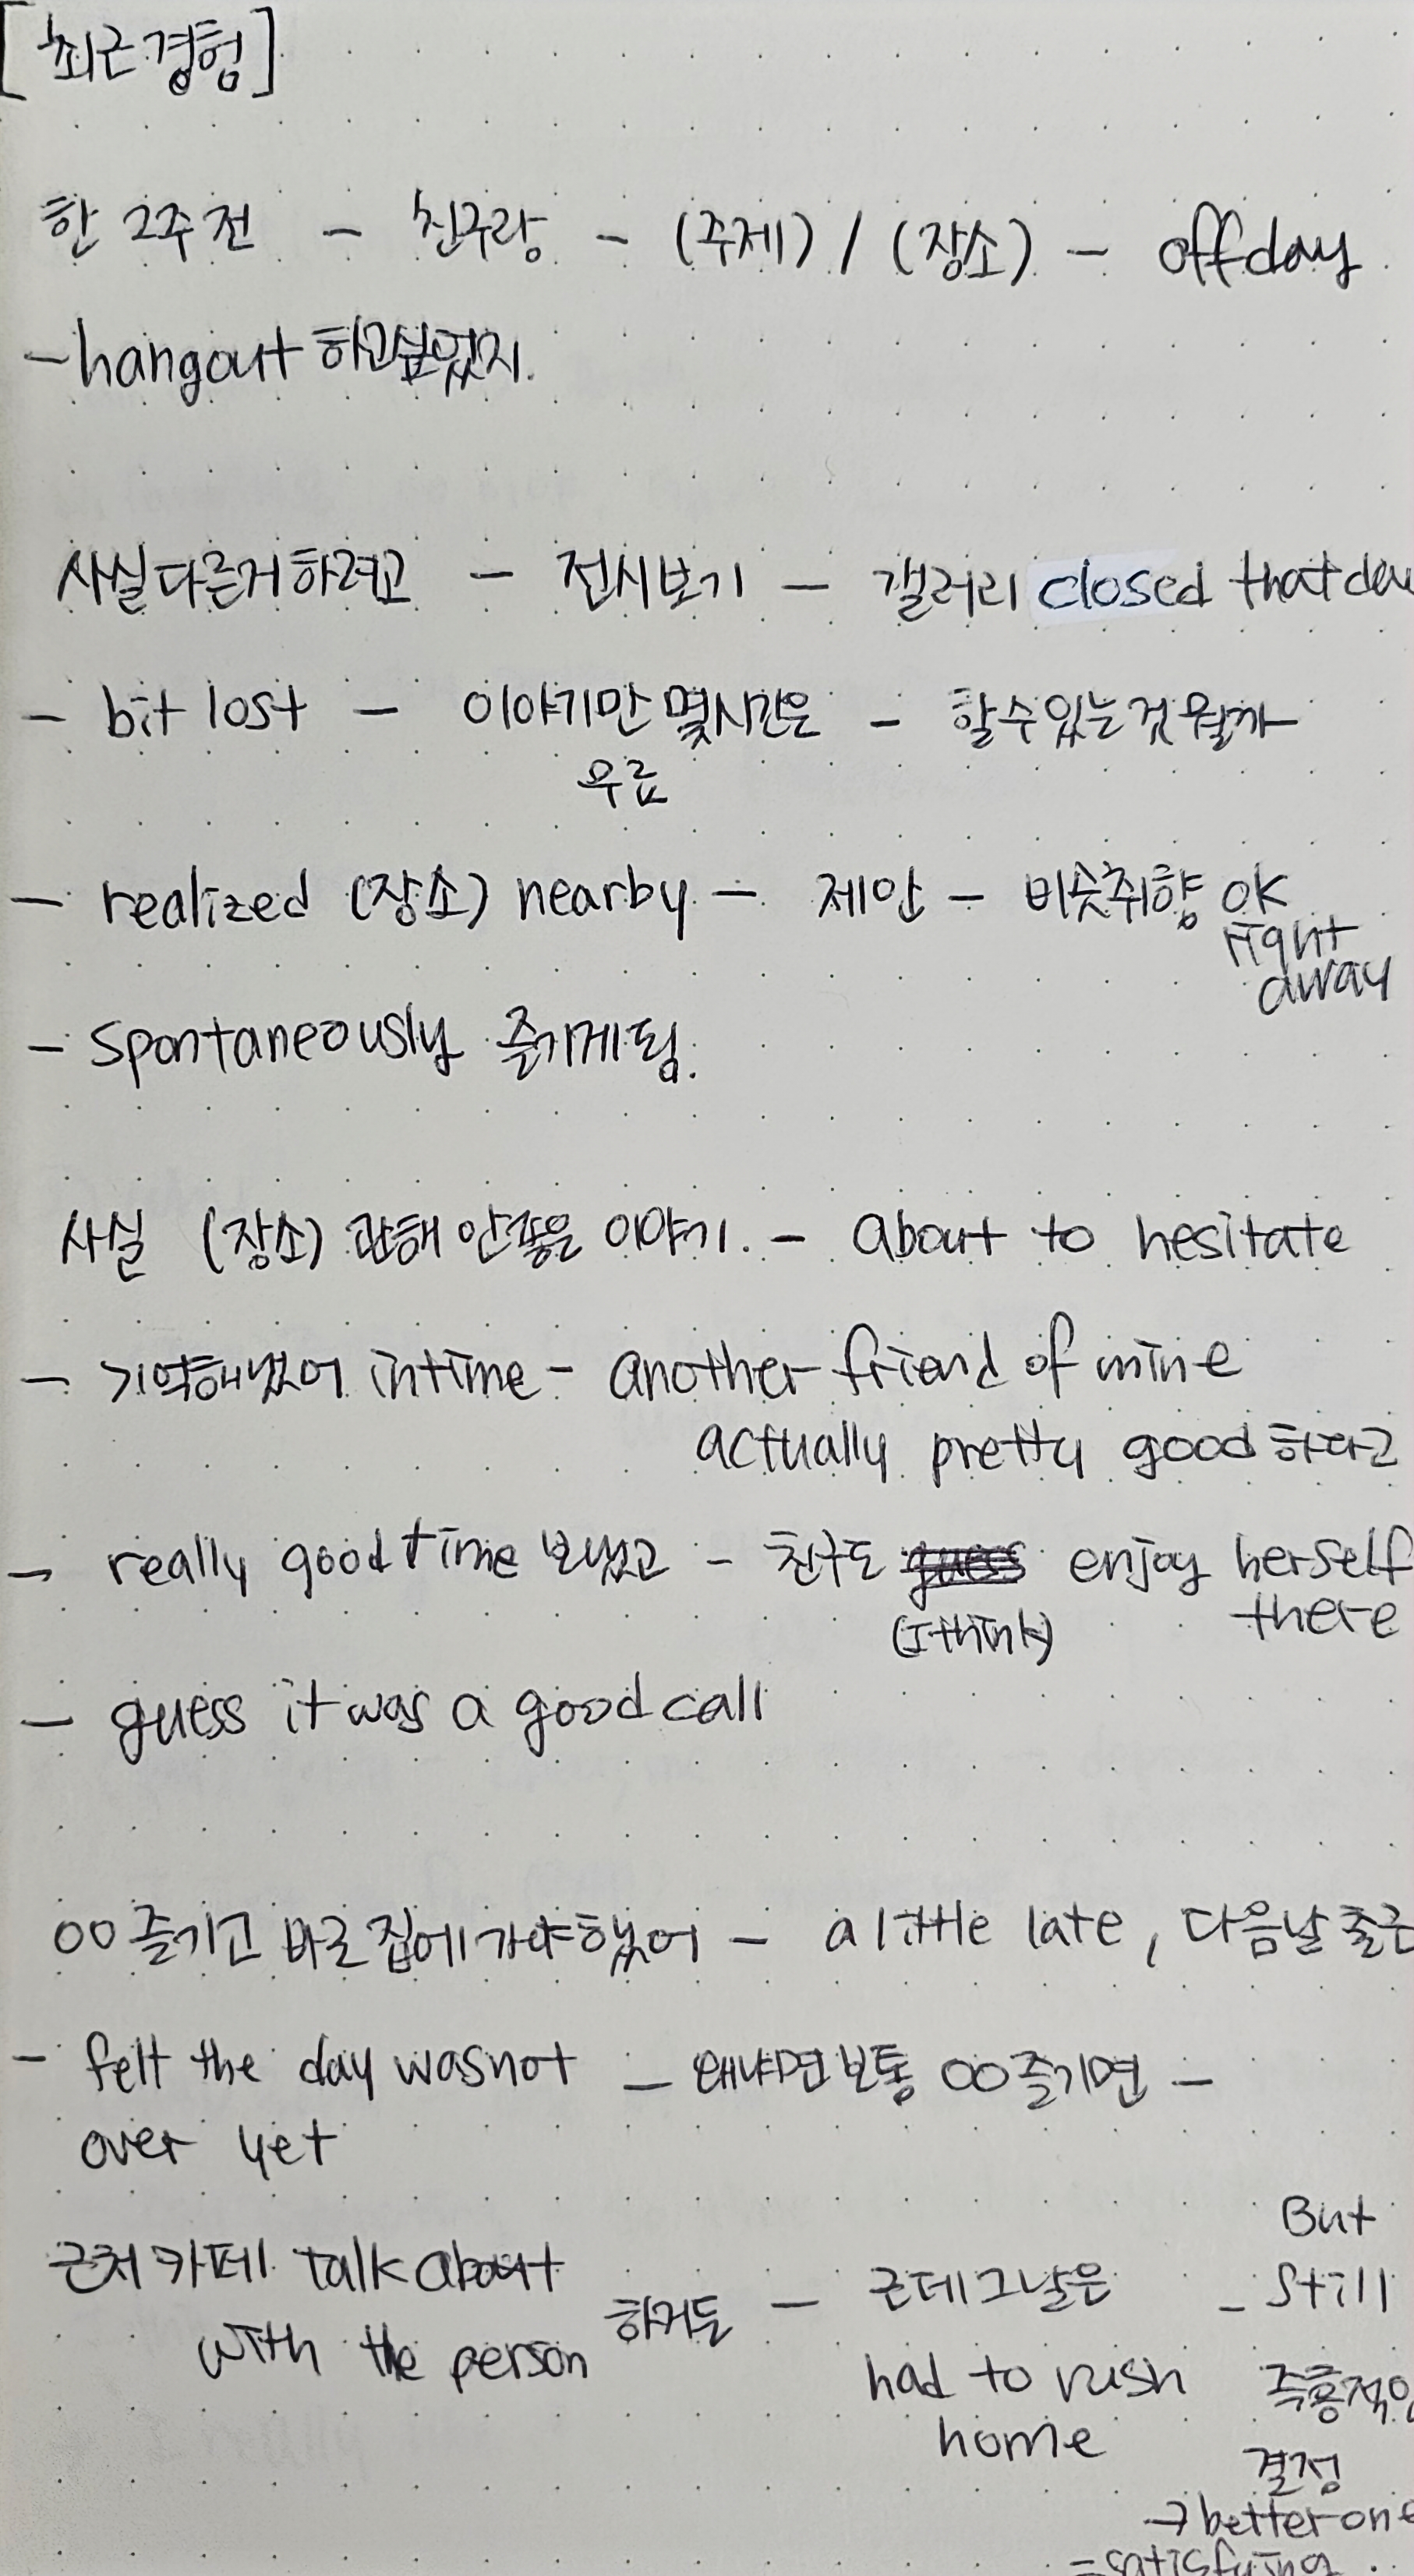 [최근경험]
한 2주 전 - 친구랑 - (주제) / (장소) - off day
- hangout 하고싶었지.
사실 다른거 하려고 - 전시보기 - 갤러리 closed that da
- bit lost - 이야기만 몇시간은 - 할 수 있는 것 뭘까
무료
- realized (장소) nearby - 제안 - 비슷취향 OK
right
away
- spontaneously 즐기게 됨.
사실 (장소) 관해 안좋은 이야기. - about to hesitate
- 기억해냈어 in time - another friend of mine
actually pretty good 하다고
- really good time 보냈고 - 친구도 enjoy herself
(I think) there
- guess it was a good call
OO 즐기고 바로 집에 가야했어 - a little late, 다음날 출근
- felt the day was not - 왜냐면 보통 OO 즐기면 -
over yet
근처 카페 talk about
with the person 하거든 - 근데 그날은
had to rush
home
But
- still
즉흥적인
결정
→ better one
= satisfying